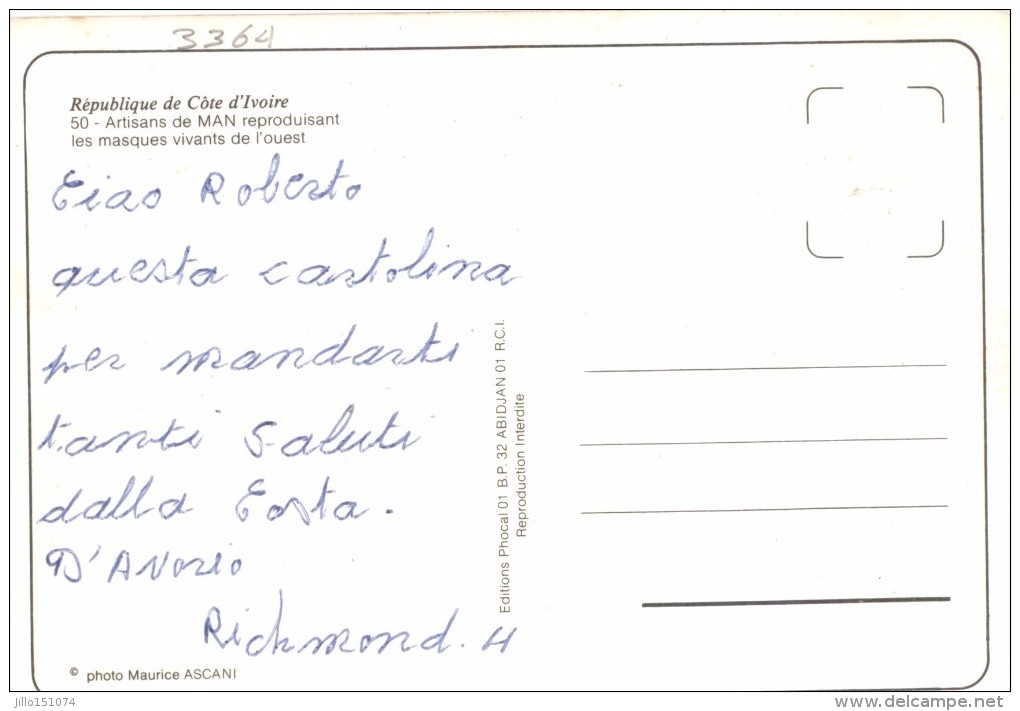 3364
République de Côte d'Ivoire
50 - Artisans de MAN reproduisant
les masques vivants de l'ouest
Ciao Roberto
questa cartolina
per mandarti
tanti saluti
dalla Costa.
D'Avorio
Richmond. H
© photo Maurice ASCANI
Editions Phocal 01 B.P. 32 ABIDJAN 01 R.C.I.
Reproduction Interdite
jillo151074
www.delcampe.net